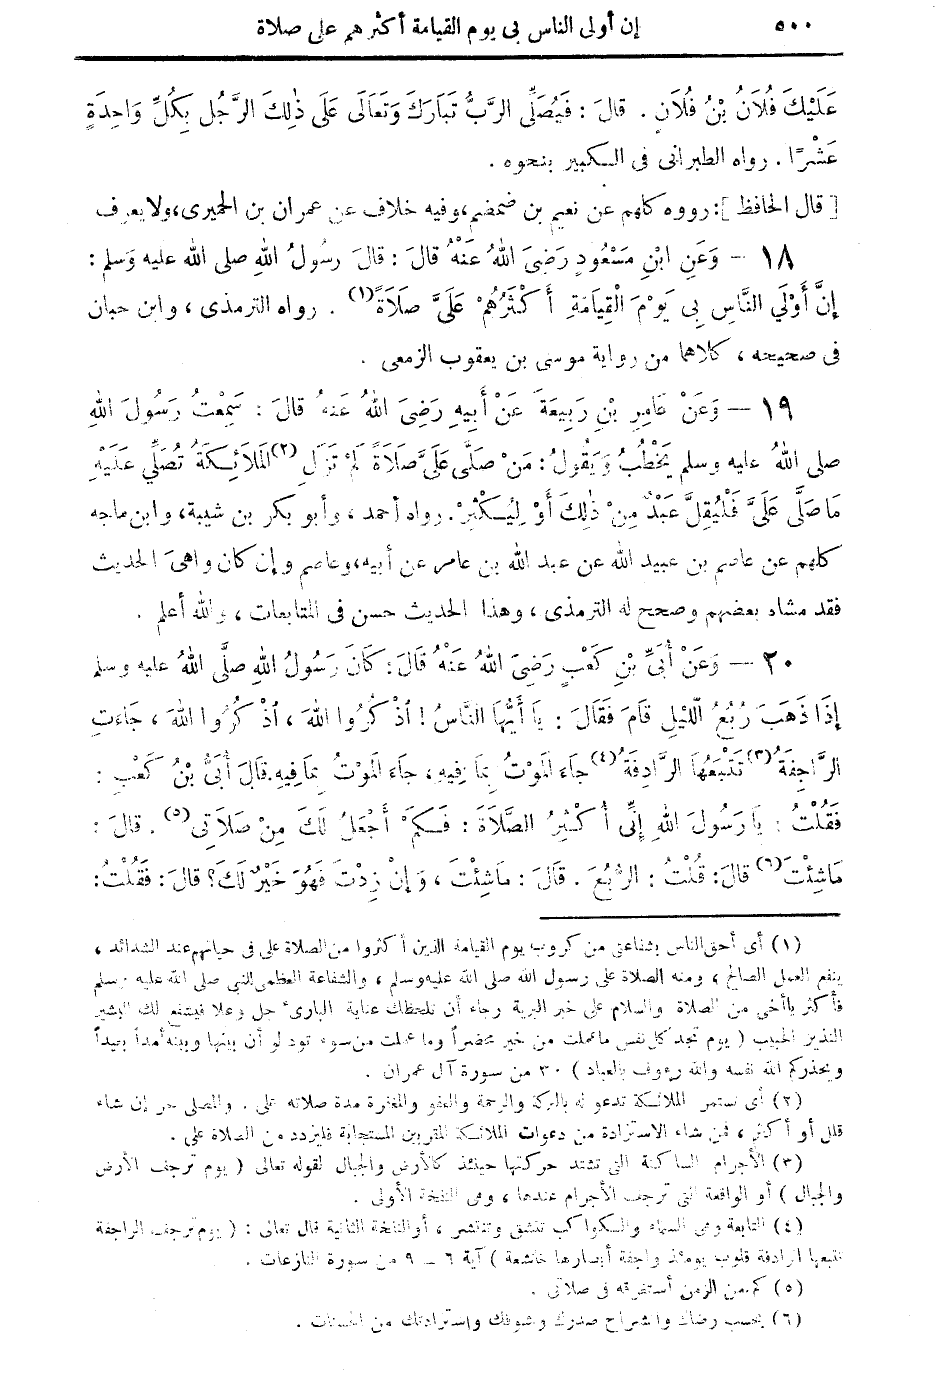 ٥٠٠
إن أولى الناس بى يوم القيامة أكثرهم على صلاة
عَلَيْكَ فُلَانُ بْنُ فُلَانٍ . قالَ : فَيُصَلِّى الرَّبُّ تَبَارَكَ وَتَعَالَى عَلَى ذٰلِكَ الرَّجُلِ بِكُلِّ وَاحِدَةٍ
عَشْرًا . رواه الطبرانى فى الكبير بنحوه .
[ قال الحافظ ]: رووه كلهم عن نعيم بن ضمضم، وفيه خلاف عن عمران بن الحميرى، ولا يعرف
١٨ — وَعَنِ ابْنِ مَسْعُودٍ رَضِىَ اللهُ عَنْهُ قالَ : قالَ رسُولُ اللهِ صلى الله عليه وَسلم :
إِنَّ أَوْلَي النَّاسِ بِى يَوْمَ الْقِيَامَةِ أَكْثَرُهُمْ عَلَىَّ صَلَاةً(١) . رواه الترمذى ، وابن حبان
فى صحيحه ، كلاهما من رواية موسى بن يعقوب الزمعى .
١٩ — وَعَنْ عَامِرِ بْنِ رَبِيعَةَ عَنْ أَبِيهِ رَضِىَ اللهُ عَنهُ قالَ : سَمِعْتُ رَسُولَ اللهِ
صلى اللهُ عليه وسلم يَخْطُبُ وَيَقُولُ : مَنْ صَلَّى عَلَىَّ صَلَاةً لَمْ تَزَلِ (٢) الْمَلَائِكَةُ تُصَلِّي عَلَيْهِ
مَا صَلَّى عَلَىَّ فَلْيُقِلَّ عَبْدٌ مِنْ ذٰلِكَ أَوْ لِيُكْثِرْ . رواه أحمد ، وأبو بكر بن شيبة ، وابن ماجه
كلهم عن عاصم بن عبيد الله عن عبد الله بن عامر عن أبيه، وعاصم وإن كان واهىَ الحديث
فقد مشاه بعضهم وصحح له الترمذى ، وهذا الحديث حسن فى المتابعات ، والله أعلم .
٢٠ — وَعَنْ أُبَىِّ بْنِ كَعْبٍ رَضِىَ اللهُ عَنْهُ قَالَ : كَانَ رَسُولُ اللهِ صلَّى اللهُ عليه وسلم
إِذَا ذَهَبَ رُبُعُ اللَّيْلِ قَامَ فَقَالَ : يَا أَيُّهَا النَّاسُ ! اذْكُرُوا اللهَ ، اذْكُرُوا اللهَ ، جَاءَتِ
الرَّاجِفَةُ(٣) تَتْبَعُهَا الرَّادِفَةُ(٤) جَاءَ الْمَوْتُ بِمَا فِيهِ ، جَاءَ الْمَوْتُ بِمَا فِيهِ. قَالَ أُبَىُّ بْنُ كَعْبٍ :
فَقُلْتُ : يَا رَسُولَ اللهِ إِنِّى أُكْثِرُ الصَّلَاةَ : فَكَمْ أَجْعَلُ لَكَ مِنْ صَلَاتِى(٥) . قالَ :
مَا شِئْتَ(٦) قالَ : قُلْتُ : الرُّبُعَ . قَالَ : مَا شِئْتَ ، وَإِنْ زِدْتَ فَهُوَ خَيْرٌ لَكَ؟ قالَ : فَقُلْتُ :
(١) أى أحق الناس بشفاعتى من كروب يوم القيامة الذين أكثروا من الصلاة على فى حياتهم عند الشدائد ،
ينفع العمل الصالح ، ومنه الصلاة على رسول الله صلى الله عليه وسلم ، والشفاعة العظمى للنبى صلى الله عليه وسلم
فأكثر يا أخى من الصلاة والسلام على خير البرية رجاء أن تلحظك عناية البارئ جل وعلا فيشفع لك البشير
النذير الحبيب ( يوم تجد كل نفس ما عملت من خير محضراً وما عملت من سوء تود لو أن بينها وبينه أمداً بعيداً
ويحذركم الله نفسه والله رءوف بالعباد ) ٣٠ من سورة آل عمران .
(٢) أى تستمر الملائكة تدعو له بالبركة والرحمة والعفو والمغفرة مدة صلاته على . والمصلى حر إن شاء
قلل أو أكثر ، فمن شاء الاستزادة من دعوات الملائكة المقربين المستجابة فليزدد من الصلاة على .
(٣) الأجرام الساكنة التى تشتد حركتها حينئذ كالأرض والجبال لقوله تعالى ( يوم ترجف الأرض
والجبال ) أو الواقعة التى ترجف الأجرام عندها ، وهى النفخة الأولى .
(٤) التابعة وهى السماء والكواكب تنشق وتنتشر ، أو النفخة الثانية قال تعالى : ( يوم ترجف الراجفة
تتبعها الرادفة قلوب يومئذ واجفة أبصارها خاشعة ) آية ٦ — ٩ من سورة النازعات .
(٥) كم من الزمن أستغرقه فى صلاتى .
(٦) بحسب رضاك وانشراح صدرك وشوقك واستزادتك من الحسنات .